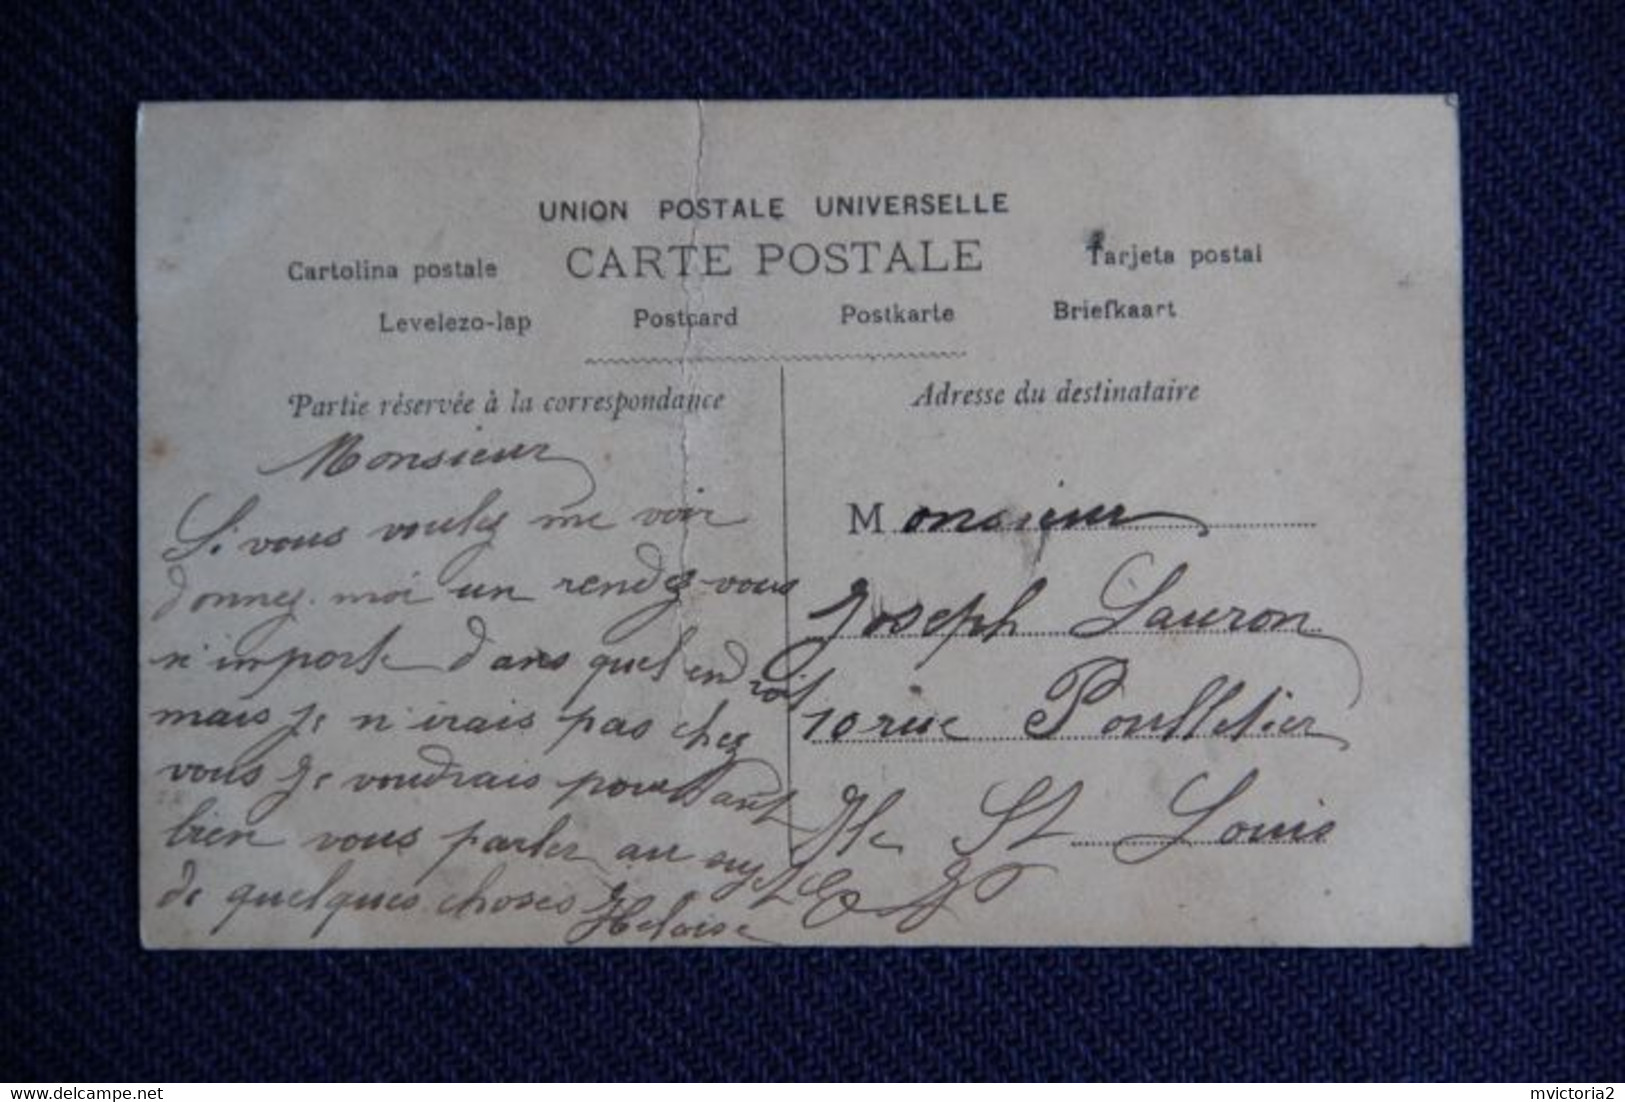 UNION POSTALE UNIVERSELLE
CARTE POSTALE
Cartolina postale
Tarjeta postal
Levelezo-lap Postcard Postkarte Briefkaart
Partie réservée à la correspondance
Monsieur
Si vous voulez me voir
donnez moi un rendez-vous
n'importe dans quel endroit
mais je n'irais pas chez
vous je voudrais pourtant
bien vous parler au sujet
de quelques choses
Heloise
Adresse du destinataire
Monsieur
Joseph Lauron
10 rue Poulletier
Ile St Louis
mvictoria2